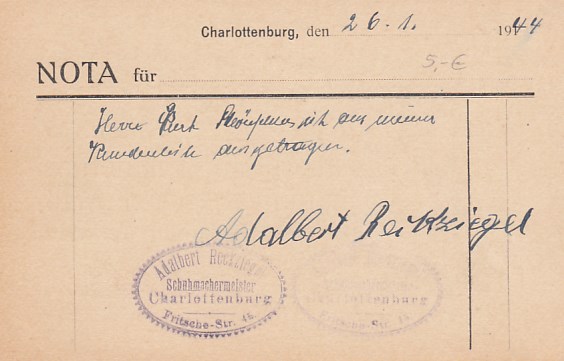 Charlottenburg, den 26.1. 1944
5,-€
NOTA für
Herr Kurt ist aus meiner
Kundenliste ausgetragen.
Adalbert Reikziegel
Adalbert
Schuhmachermeister
Charlottenburg
Fritsche-Str. 48
Charlottenburg
Fritsche-Str.